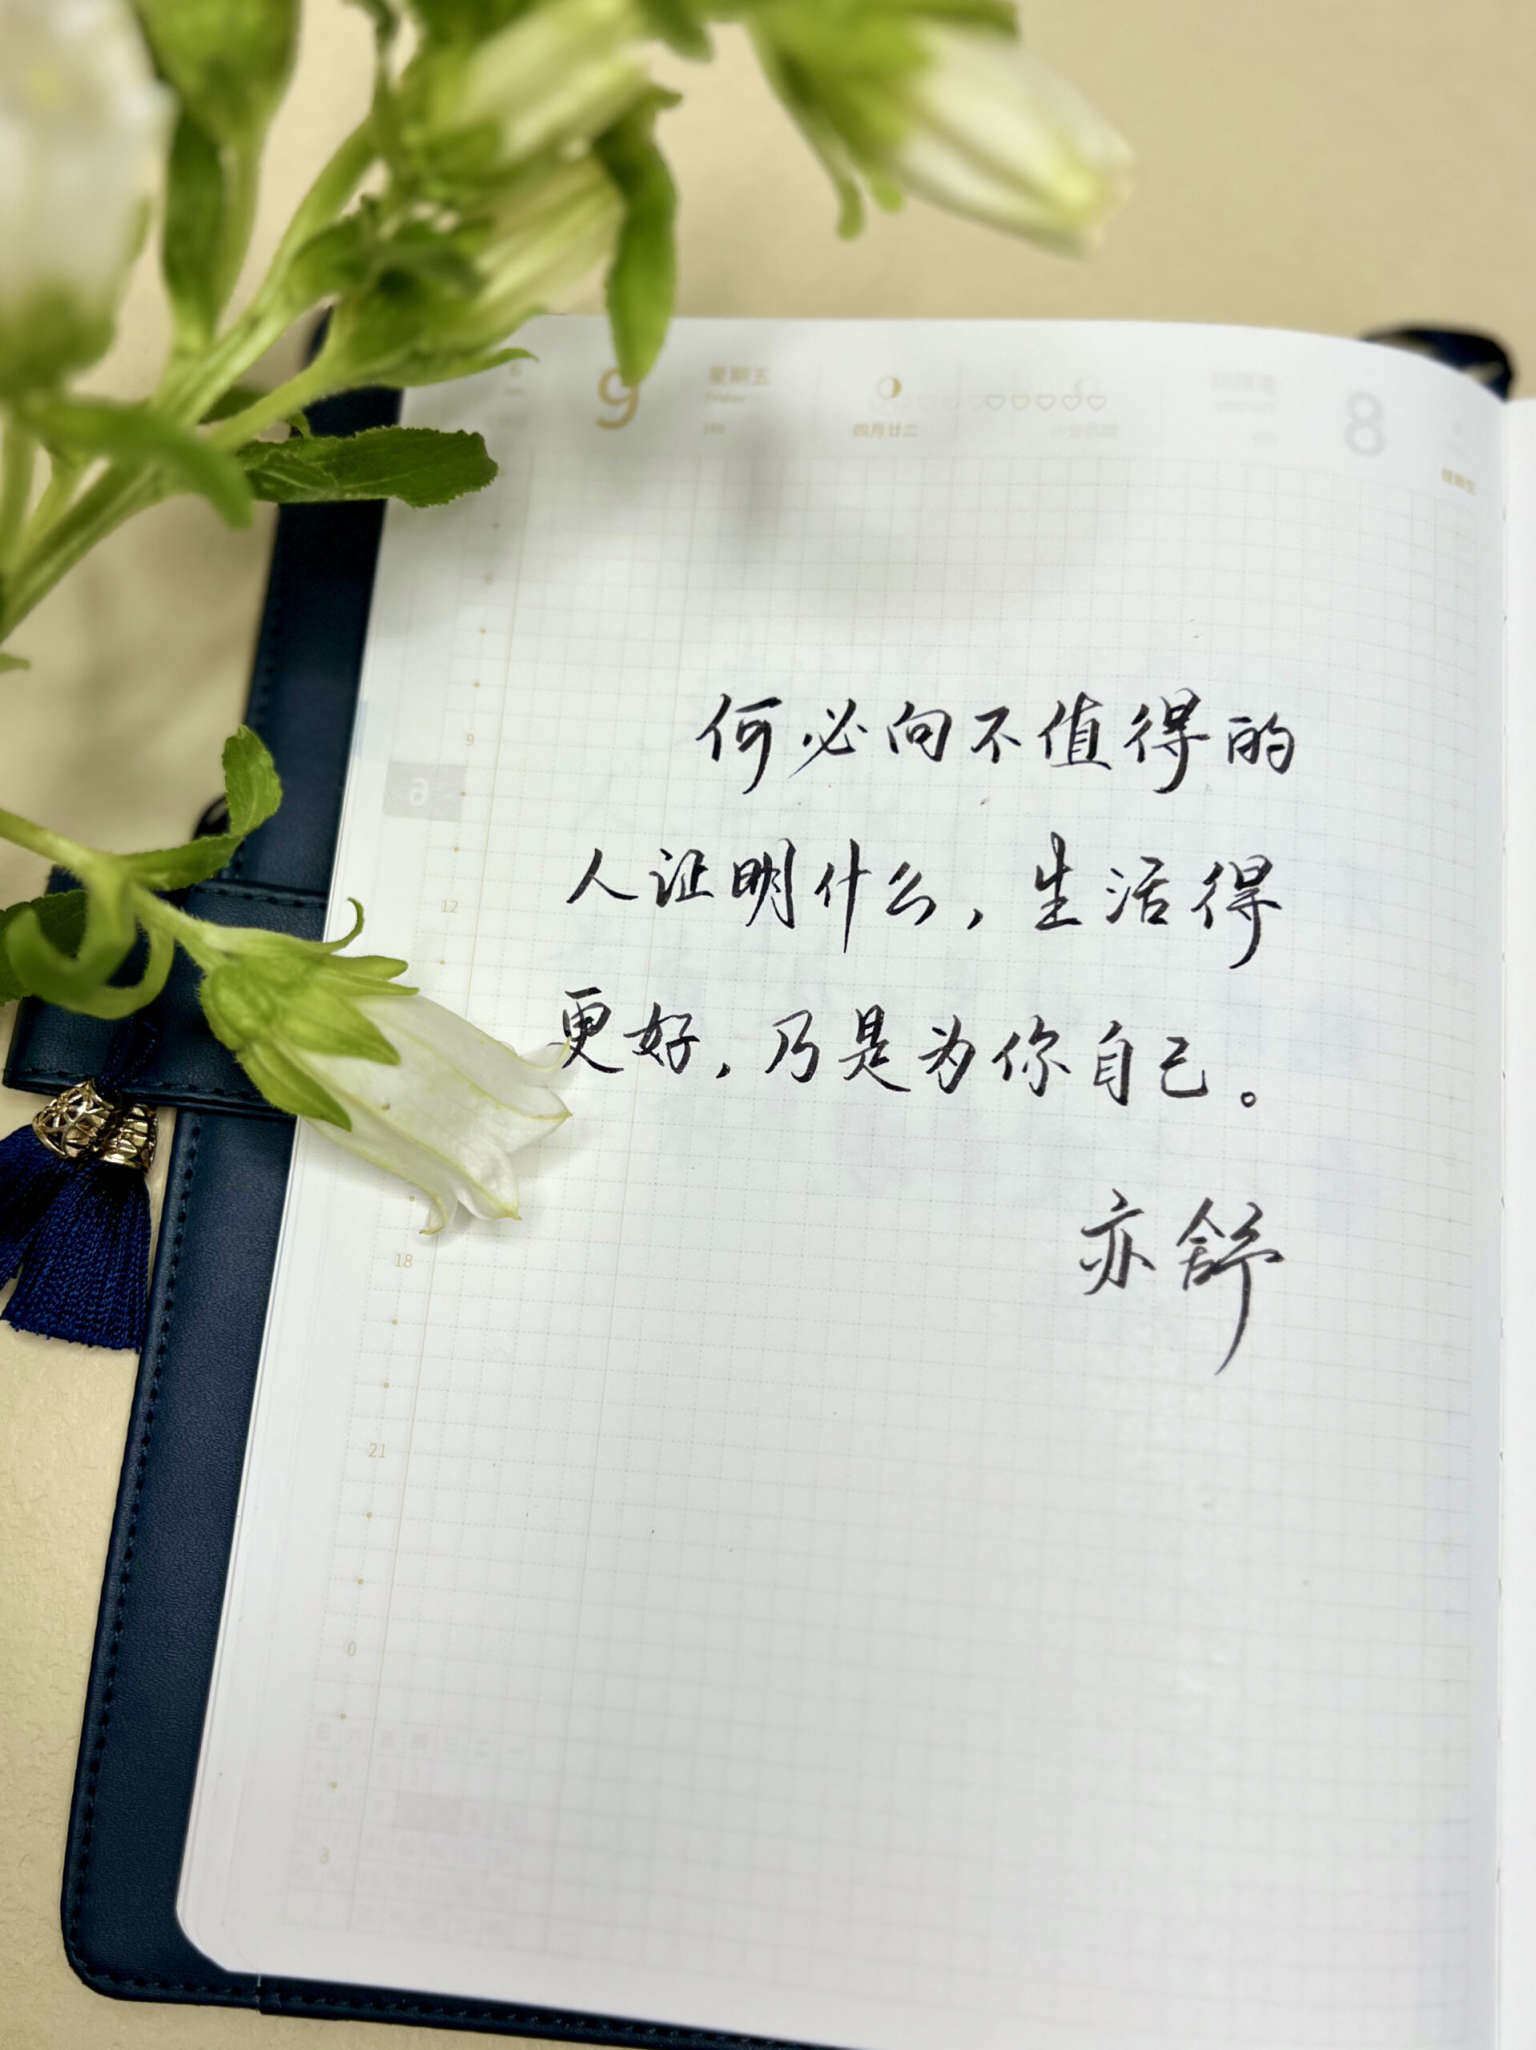 9
星期五
四月廿二
何必向不值得的
人证明什么，生活得
更好，乃是为你自己。
亦舒
9
12
18
21
0
3